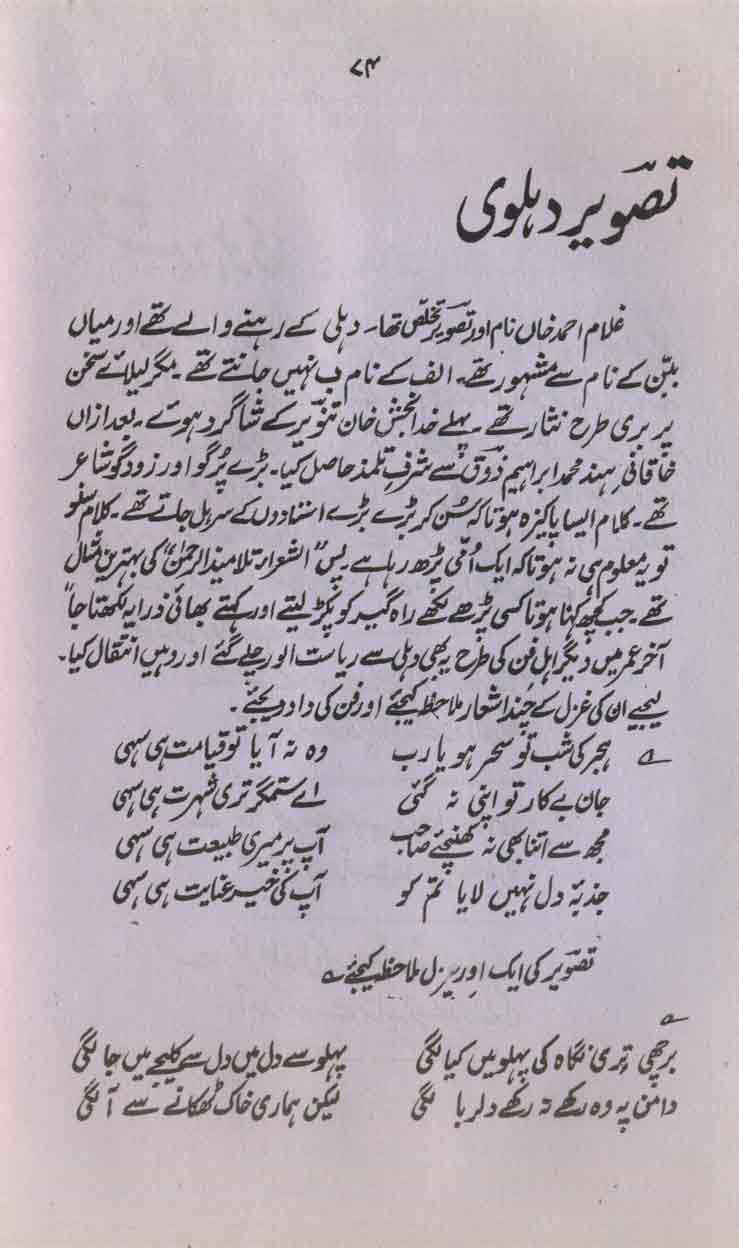 ۷۴
تصویر دہلوی
غلام احمد خاں نام اور تصویر تخلص تھا۔ دہلی کے رہنے والے تھے اور میاں
ببّن کے نام سے مشہور تھے۔ الف کے نام ب نہیں جانتے تھے۔ مگر لیلائے سخن
پر بری طرح نثار تھے۔ پہلے خدا بخش خان تنویر کے شاگرد ہوئے۔ بعد ازاں
خاقانیِ ہند محمد ابراہیم ذوق سے شرفِ تلمذ حاصل کیا۔ بڑے پُرگو اور زود گو شاعر
تھے۔ کلام ایسا پاکیزہ ہوتا کہ سُن کر بڑے بڑے استادوں کے سر ہل جاتے تھے۔ کلام سنو
تو یہ معلوم ہی نہ ہوتا کہ ایک اُمّی پڑھ رہا ہے۔ بس "الشعراء تلامیذ الرحمٰن" کی بہترین مثال
تھے۔ جب کچھ کہنا ہوتا کسی پڑھے لکھے راہ گیر کو پکڑ لیتے اور کہتے بھائی ذرا یہ لکھتا جا"
آخر عمر میں دیگر اہل فن کی طرح یہ بھی دہلی سے ریاست الور چلے گئے اور وہیں انتقال کیا۔
لیجیے ان کی غزل کے چند اشعار ملاحظہ کیجئے اور فن کی داد دیجئے۔
ہجر کی شب تو سحر ہو یا رب وہ نہ آیا تو قیامت ہی سہی
جان بے کار تو اپنی نہ گئی اے ستمگر تری شہرت ہی سہی
مجھ سے اتنا بھی نہ کھنچئے صاحب آپ پر میری طبیعت ہی سہی
جذبۂ دل نہیں لایا تم کو آپ کی خیر عنایت ہی سہی
تصویر کی ایک اور غزل ملاحظہ کیجئے
برچھی تری نگاہ کی پہلو میں کیا لگی پہلو سے دل میں دل سے کلیجے میں جا لگی
دامن پہ وہ رکھے نہ رکھے دلربا لگی لیکن ہماری خاک ٹھکانے سے آ لگی